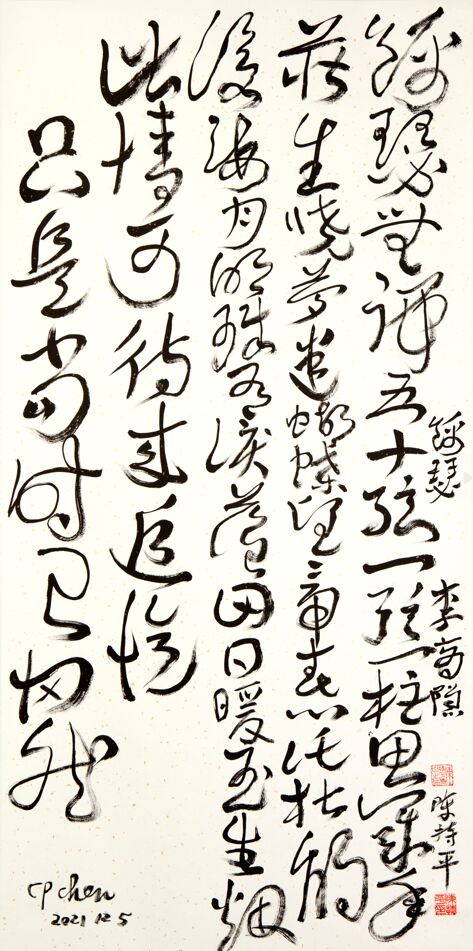 錦瑟 李商隱 陳持平
錦瑟無端五十弦一弦一柱思華年
莊生曉夢迷蝴蝶望帝春心託杜鵑
滄海月明珠有淚藍田日暖玉生煙
此情可待成追憶
只是當時已惘然
CP Chen
2021 12 5